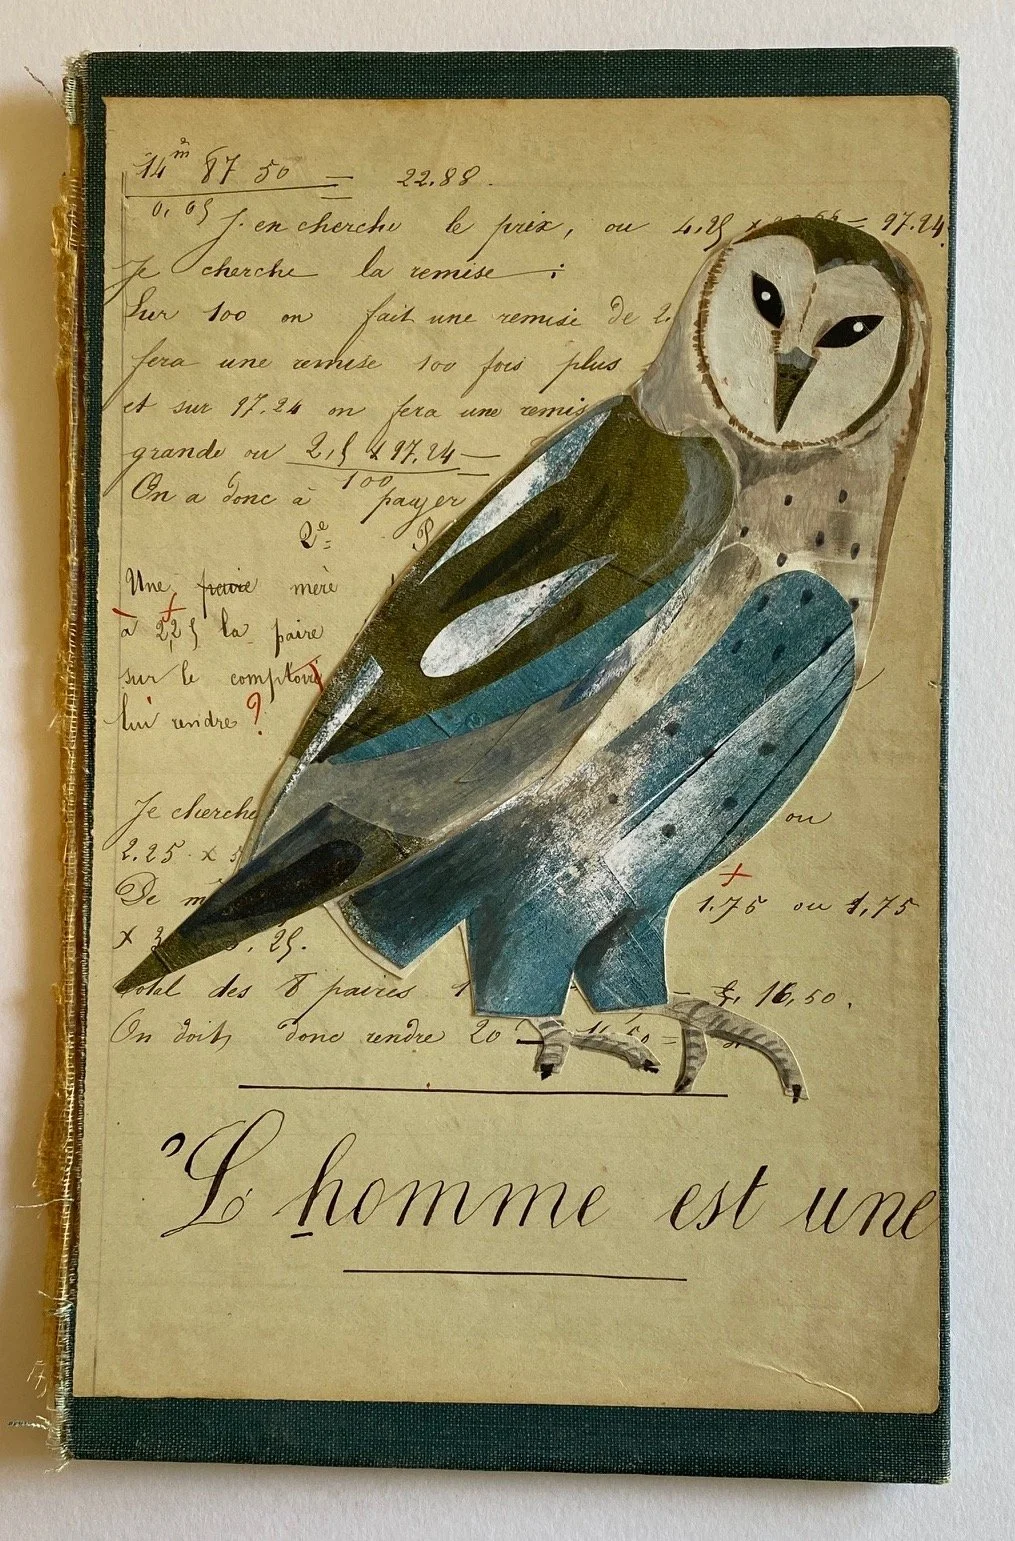 14m 87 50 = 22.88.
0,65
J. en cherche le prix, ou 4.25 x = 97.24.
Je cherche la remise :
Sur 100 on fait une remise de 2.
fera une remise 100 fois plus
et sur 97.24 on fera une remis
grande ou 2,5 x 97.24 =
100
On a donc à payer
2e = P
Une paire mère
à 2,25 la paire
sur le comptoir
lui rendre ?
Je cherche ou
2.25 x
De m 1.75 ou 1,75
x 3 , 25.
total des 8 paires 1 = 16,50.
On doit donc rendre 20 - 16,50 =
L'homme est une